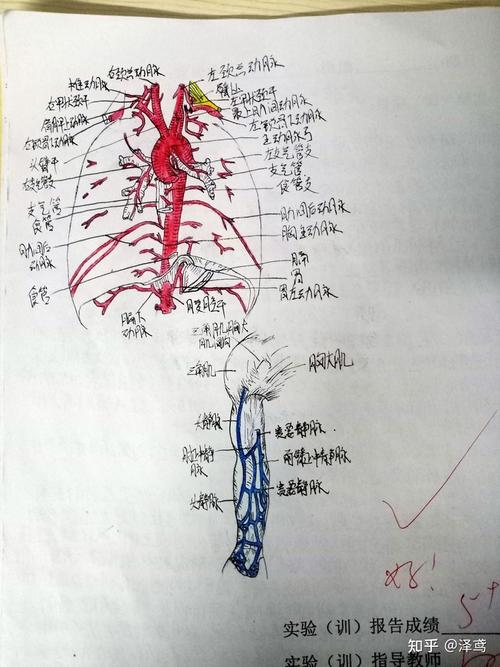 右颈总动脉
左颈总动脉
椎动脉
臂丛
右甲状颈干
左甲状颈干
肩胛上动脉
最上肋间动脉
右锁骨下动脉
左锁骨下动脉
主动脉弓
头臂干
左支气管支
右支气管支
支气管
食管支
支气管
食管
肋间后动脉
胸主动脉
肋间后
动脉
膈
胃
食管
胃左动脉
膈下
动脉
腹腔干
三角肌胸大
肌间沟
三角肌
胸大肌
头静脉
贵要静脉
肘正中静
脉
前臂正中静脉
头静脉
贵要静脉
好!
5+
实验(训)报告成绩
知乎 @泽鸢
实验(训)指导教师